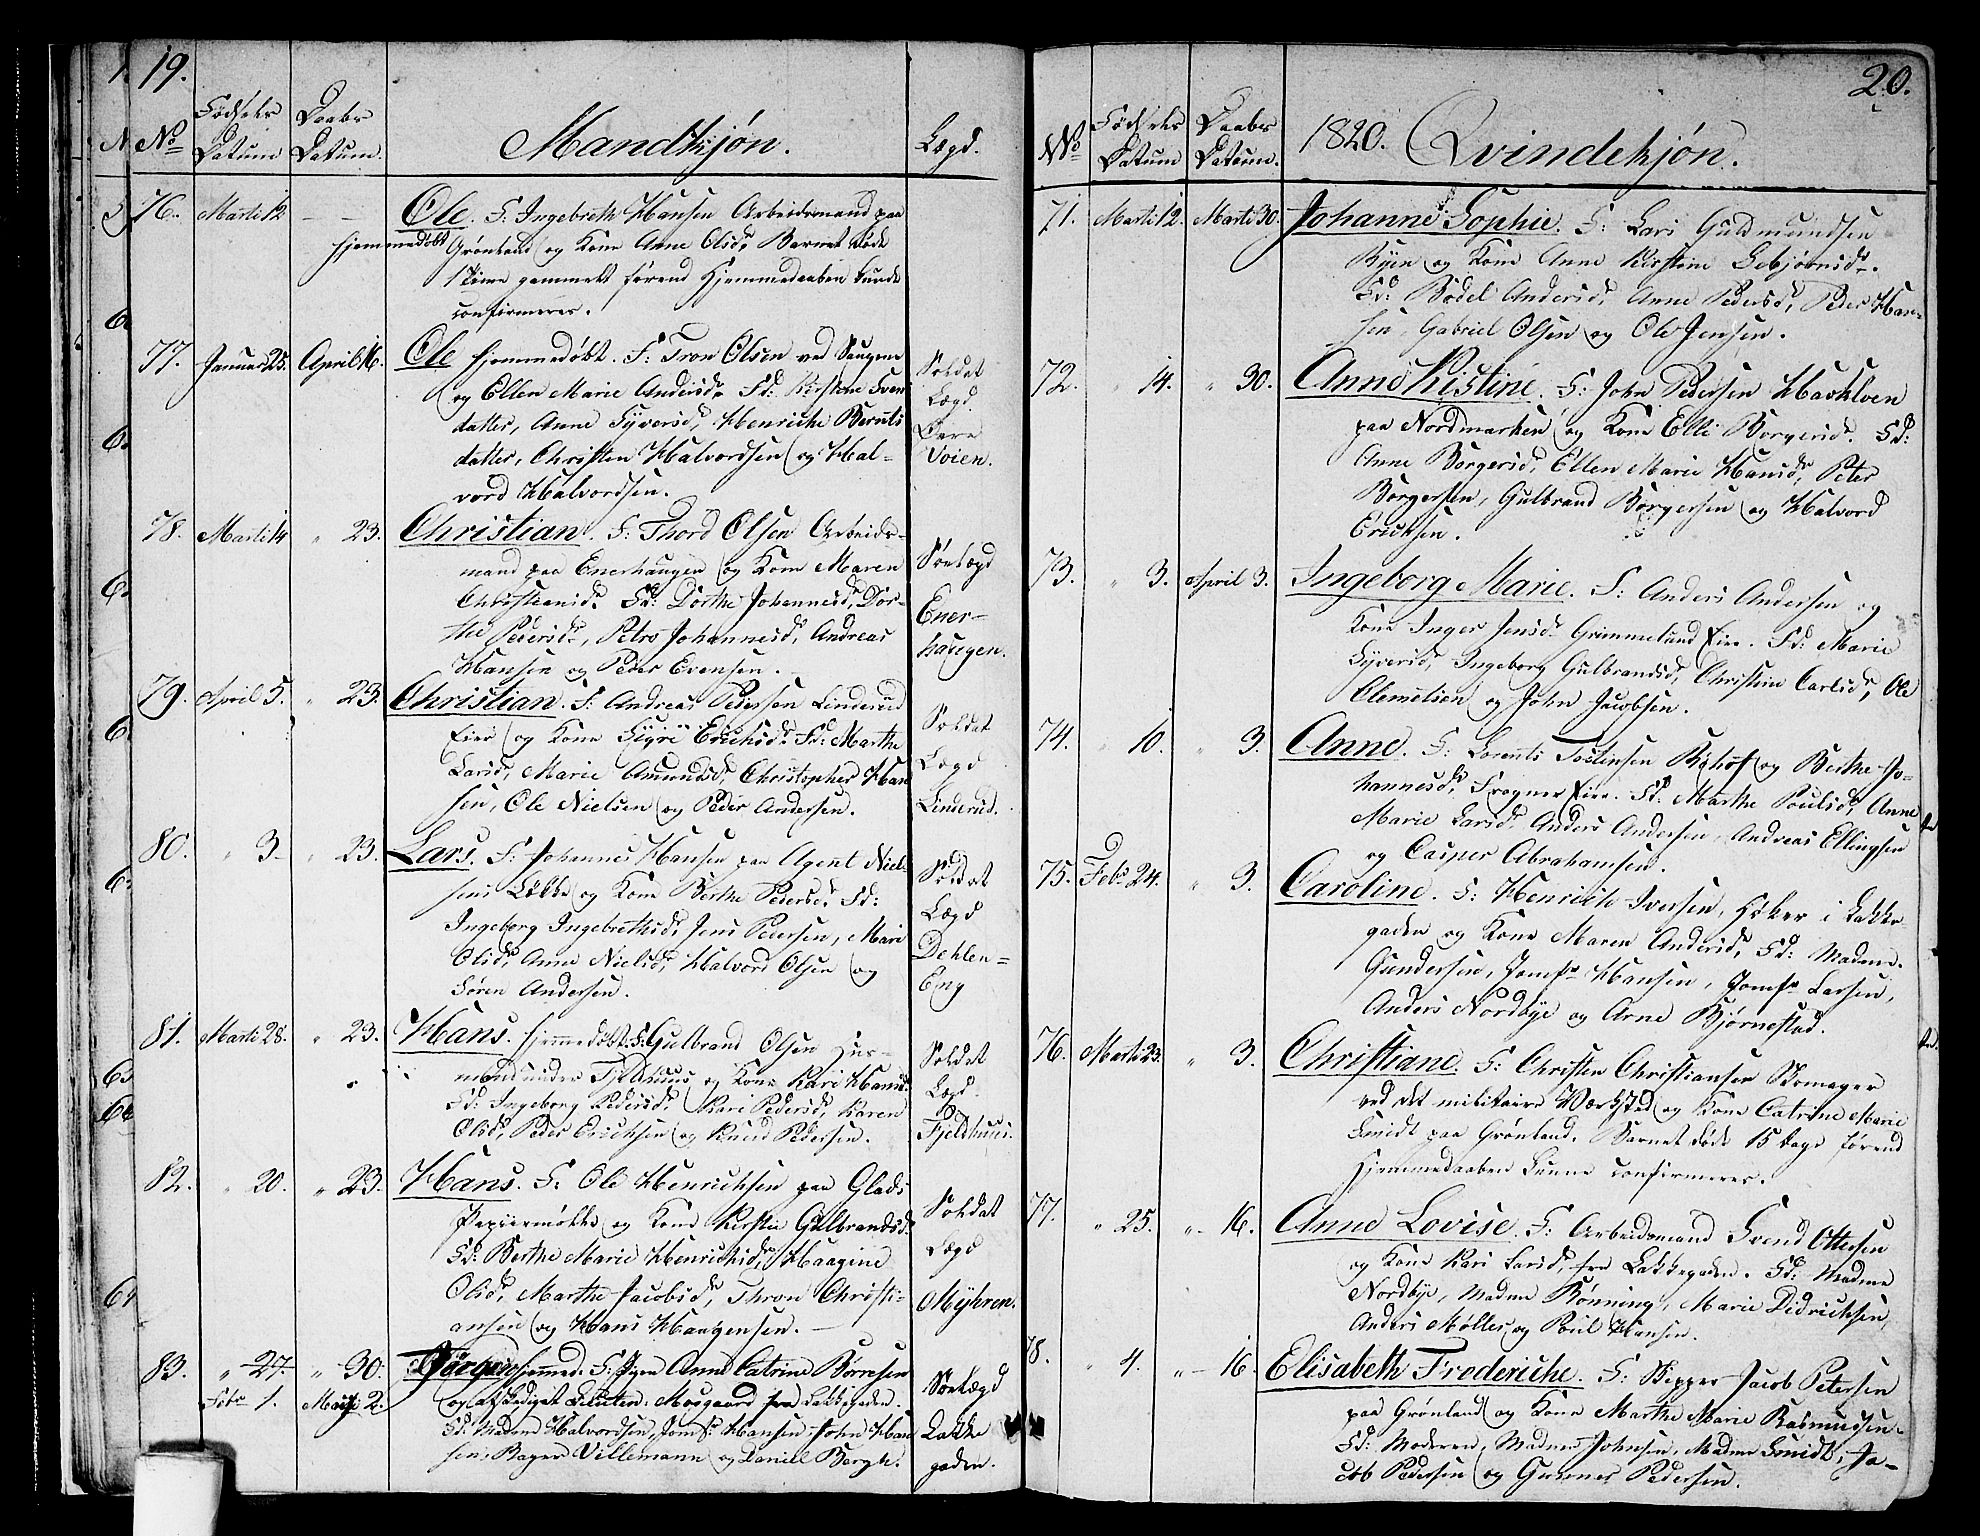 19.
No Fødsels Datum Daabs Datum. Mandkjøn. Lægd.
76. Martii 12 — — Ole. F: Ingebreth Hansen Arbeidsmand paa
hjemmedøbt Grønland og Kone Anne Olsd. Barnet døde
1 Time gammelt førend Hjemmedaaben kunde
confirmeres.
77. Januar 25. April 16. Ole hjemmedøbt. F: Tron Olsen ved Saugene Soldat
og Ellen Marie Andersd. Fd: Kirstene Svens Lægd.
datter, Anne Syversd, Henriche Bernts Øvre
datter, Christen Halvordsen og Hal- Voien.
vord Halvordsen.
78. Martii 14 " 23. Christian. F: Thord Olsen Arbeids-
mand paa Enerhaugen og Kone Maren Søelægd
Christiansd. Fd: Dorthe Johannesd, Dor- Ener-
the Pedersd, Petro Johannesd, Andreas haugen.
Hansen og Peder Evensen.
79. April 5. " 23. Christian. F: Andreas Pedersen Linderud
Eier og Kone Sigri Erichsd. Fd: Marthe Soldat
Larsd, Marie Amundsd, Christopher Han Lægd
sen, Ole Nielsen og Peder Andersen. Linderud.
80. " 3 " 23. Lars. F: Johannes Hansen paa Agent Niel-
sens Løkke og Kone Berthe Pedersd. Fd: Soldat
Ingeborg Ingebrethsd, Jens Pedersen, Mari Lægd
Olsd, Anne Nielsd, Halvord Olsen og Dehlen-
Søren Andersen. Eng
81. Martii 28. " 23. Hans. hjemmedøbt. F: Gulbrand Olsen Hus-
mand under Fjeldhuus og Kone Kari Hansd. Soldat
Fd: Ingeborg Pedersd, Kari Pedersd, Karen Lægd.
Olsd, Peder Erichsen og Knud Pedersen. Fjeldhuus.
82. " 20. " 23. Hans. F: Ole Henrichsen paa Glads
Papiermølle og Kone Kirstie Gulbrandsd. Soldat
Fd: Berthe Marie Henrichsd, Haagine Lægd
Olsd, Marthe Jacobsd, Thron Christi- Myhren.
ansen og Hans Haagensen.
83. " 27. " 30. Jørgen hjemmed. F: Pigen Anne Catrine Børresen Søelægd
Febr 1. 2. og afskediget Lieuten: Mosgaard fra Lakkegaden. Lakke
Fd: Madme Halvordsen, Jomf: Hansen, John Han
sen, Bager Villemann og Daniell Bergh. gaden.
20.
No Fødsels Datum Daabs Datum. 1820. Qvindekjøn.
71. Martii 12. Martii 30. Johanne Sophie. F: Lars Guldmundsen
Ryen og Kone Anne Kirstine Lebjørnsd.
Fd: Bodel Andersd, Anne Pedersd, Peder Han-
sen, Gabriel Olsen og Ole Jensen.
72. " 14. " 30. Anne Kistine. F: John Pedersen Hasklven
paa Nordmarken og Kone Elli Borgersd. Fd:
Anne Borgersd, Ellen Marie Hansd, Peter
Borgersen, Gulbrand Borgersen og Halvord
Ericksen.
73. " 3. April 3. Ingeborg Marie. F: Anders Andersen og
Kone Inger Jensd. Grimmelund Eier. Fd: Marie
Syversd, Ingeborg Gulbrandsd, Christine Carlsd, Ole
Clemetsen og John Jacobsen.
74. " 10. " 3. Anne. F: Lorents Tostensen og Berthe Jo-
hannesd, Frogner Eier. Fd: Marthe Poulsd, Anne
Marie Larsd, Anders Andersen, Andreas Ellingsen
og Casper Abrahamsen.
75. Febr 24. " 3. Caroline. F: Henrich Iversen, Høker i Lakke
gaden og Kone Maren Andersd, Fd: Madme.
Gundersen, Jomfr Hansen, Jomfr Larsen,
Anders Nordbye og Arne Bjørnestad.
76. Martii 23. " 3. Christiane. F: Christen Christiansen Skomager
ved det militaire Værksted og Kone Catrine Marie
Smidt paa Grønland. Barnet døde 15 Dage førend
Hjemmedaaben kunne confirmeres.
77. " 25. " 16. Anne Lovise. F: Arbeidsmand Svend Ottersen
og Kone Kari Larsd, fra Lakkegaden. Fd: Madme
Nordbye, Madme Rønning, Marie Didrichsen,
Anders Møller og Poul Hansen.
78. " 4. " 16. Elisabeth Frederiche. F: Skipper Jacob Petersen
paa Grønland og Kone Marthe Marie Rasmudsen.
Fd: Moderen, Madme Johnsen, Madme Smidt, Ja-
cob Pedersen og Gunner Pedersen.